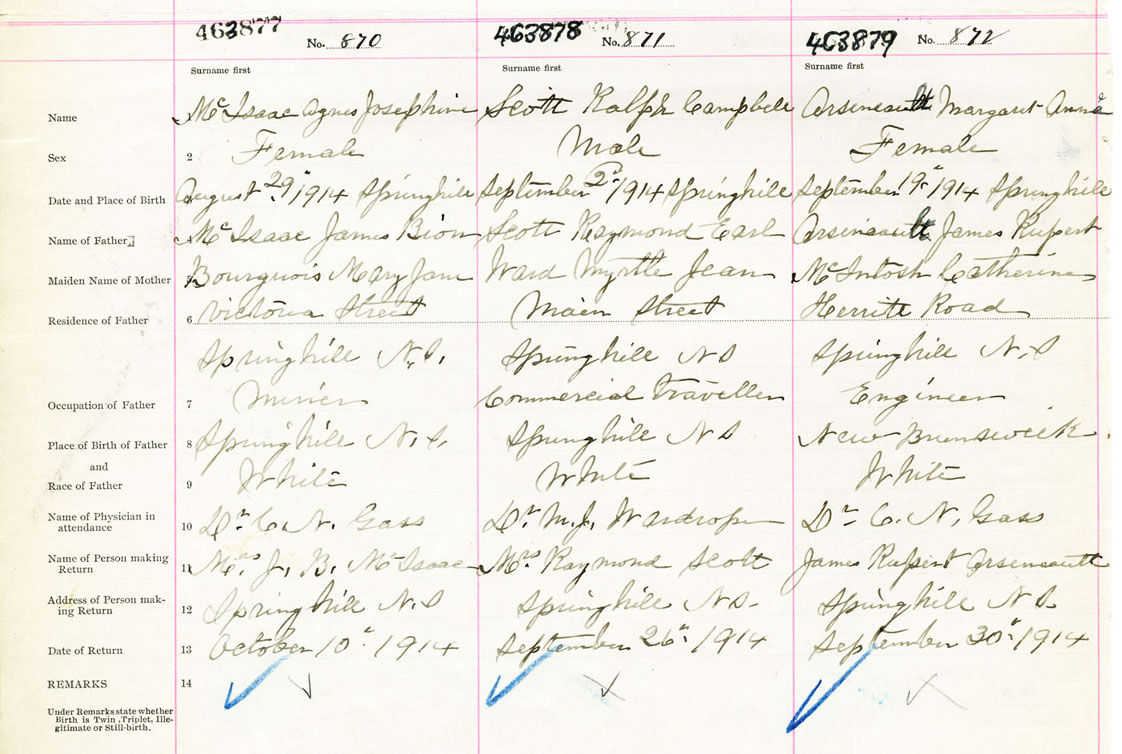 463877 No. 870 463878 No. 871 463879 No. 872
Surname first Surname first Surname first
Name McIsaac Agnes Josephine Scott Ralph Campbell Arseneault Margaret Anna
Sex 2 Female Male Female
Date and Place of Birth August 29" 1914 Springhill September 2d 1914 Springhill September 19" 1914 Springhill
Name of Father McIsaac James Bion Scott Raymond Earl Arseneault James Rupert
Maiden Name of Mother 5 Bourguois Mary Jane Ward Myrtle Jean McIntosh Catherine
Residence of Father 6 Victoria Street Main Street Herritt Road
Springhill N.S. Springhill N S Springhill N.S
Occupation of Father 7 Miner Commercial Traveller Engineer
Place of Birth of Father 8 Springhill N.S. Springhill N S New Brunswick
and
Race of Father 9 White White White
Name of Physician in
attendance 10 Dr C. N. Gass Dr M. J. Wardrope Dr C. N. Gass
Name of Person making
Return 11 Mrs J. B. McIsaac Mrs Raymond Scott James Rupert Arseneault
Address of Person mak-
ing Return 12 Springhill N.S Springhill N S. Springhill N S.
Date of Return 13 October 10" 1914 September 26" 1914 September 30" 1914
REMARKS 14
Under Remarks state whether
Birth is Twin, Triplet, Ille-
gitimate or Still-birth.